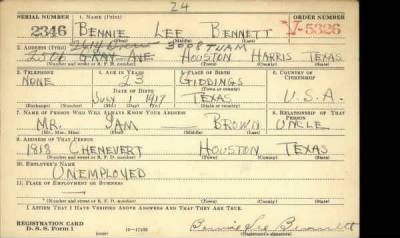 24
SERIAL NUMBER 1. NAME (Print) ORDER NUMBER
2346 BENNIE LEE BENNETT V-5326
(First) (Middle) (Last)
3008 TUAM
2. ADDRESS (Print)
GRAY AVE HOUSTON HARRIS TEXAS
(Number and street or R. F. D. number) (Town) (County) (State)
3. TELEPHONE 4. AGE IN YEARS 5. PLACE OF BIRTH 6. COUNTRY OF CITIZENSHIP
NONE 23 GIDDINGS
DATE OF BIRTH (Town or county)
JULY 1 1917 TEXAS U.S.A.
(Exchange) (Number) (Mo.) (Day) (Yr.) (State or country)
7. NAME OF PERSON WHO WILL ALWAYS KNOW YOUR ADDRESS 8. RELATIONSHIP OF THAT PERSON
MR. SAM — BROWN UNCLE
(Mr., Mrs., Miss) (First) (Middle) (Last)
9. ADDRESS OF THAT PERSON
1818 CHENEVERT HOUSTON TEXAS
(Number and street or R. F. D. number) (Town) (County) (State)
10. EMPLOYER'S NAME
UNEMPLOYED
11. PLACE OF EMPLOYMENT OR BUSINESS
(Number and street or R. F. D. number) (Town) (County) (State)
I AFFIRM THAT I HAVE VERIFIED ABOVE ANSWERS AND THAT THEY ARE TRUE.
REGISTRATION CARD
D. S. S. Form 1 (over) Bennie Lee Bennett
(Registrant's signature)